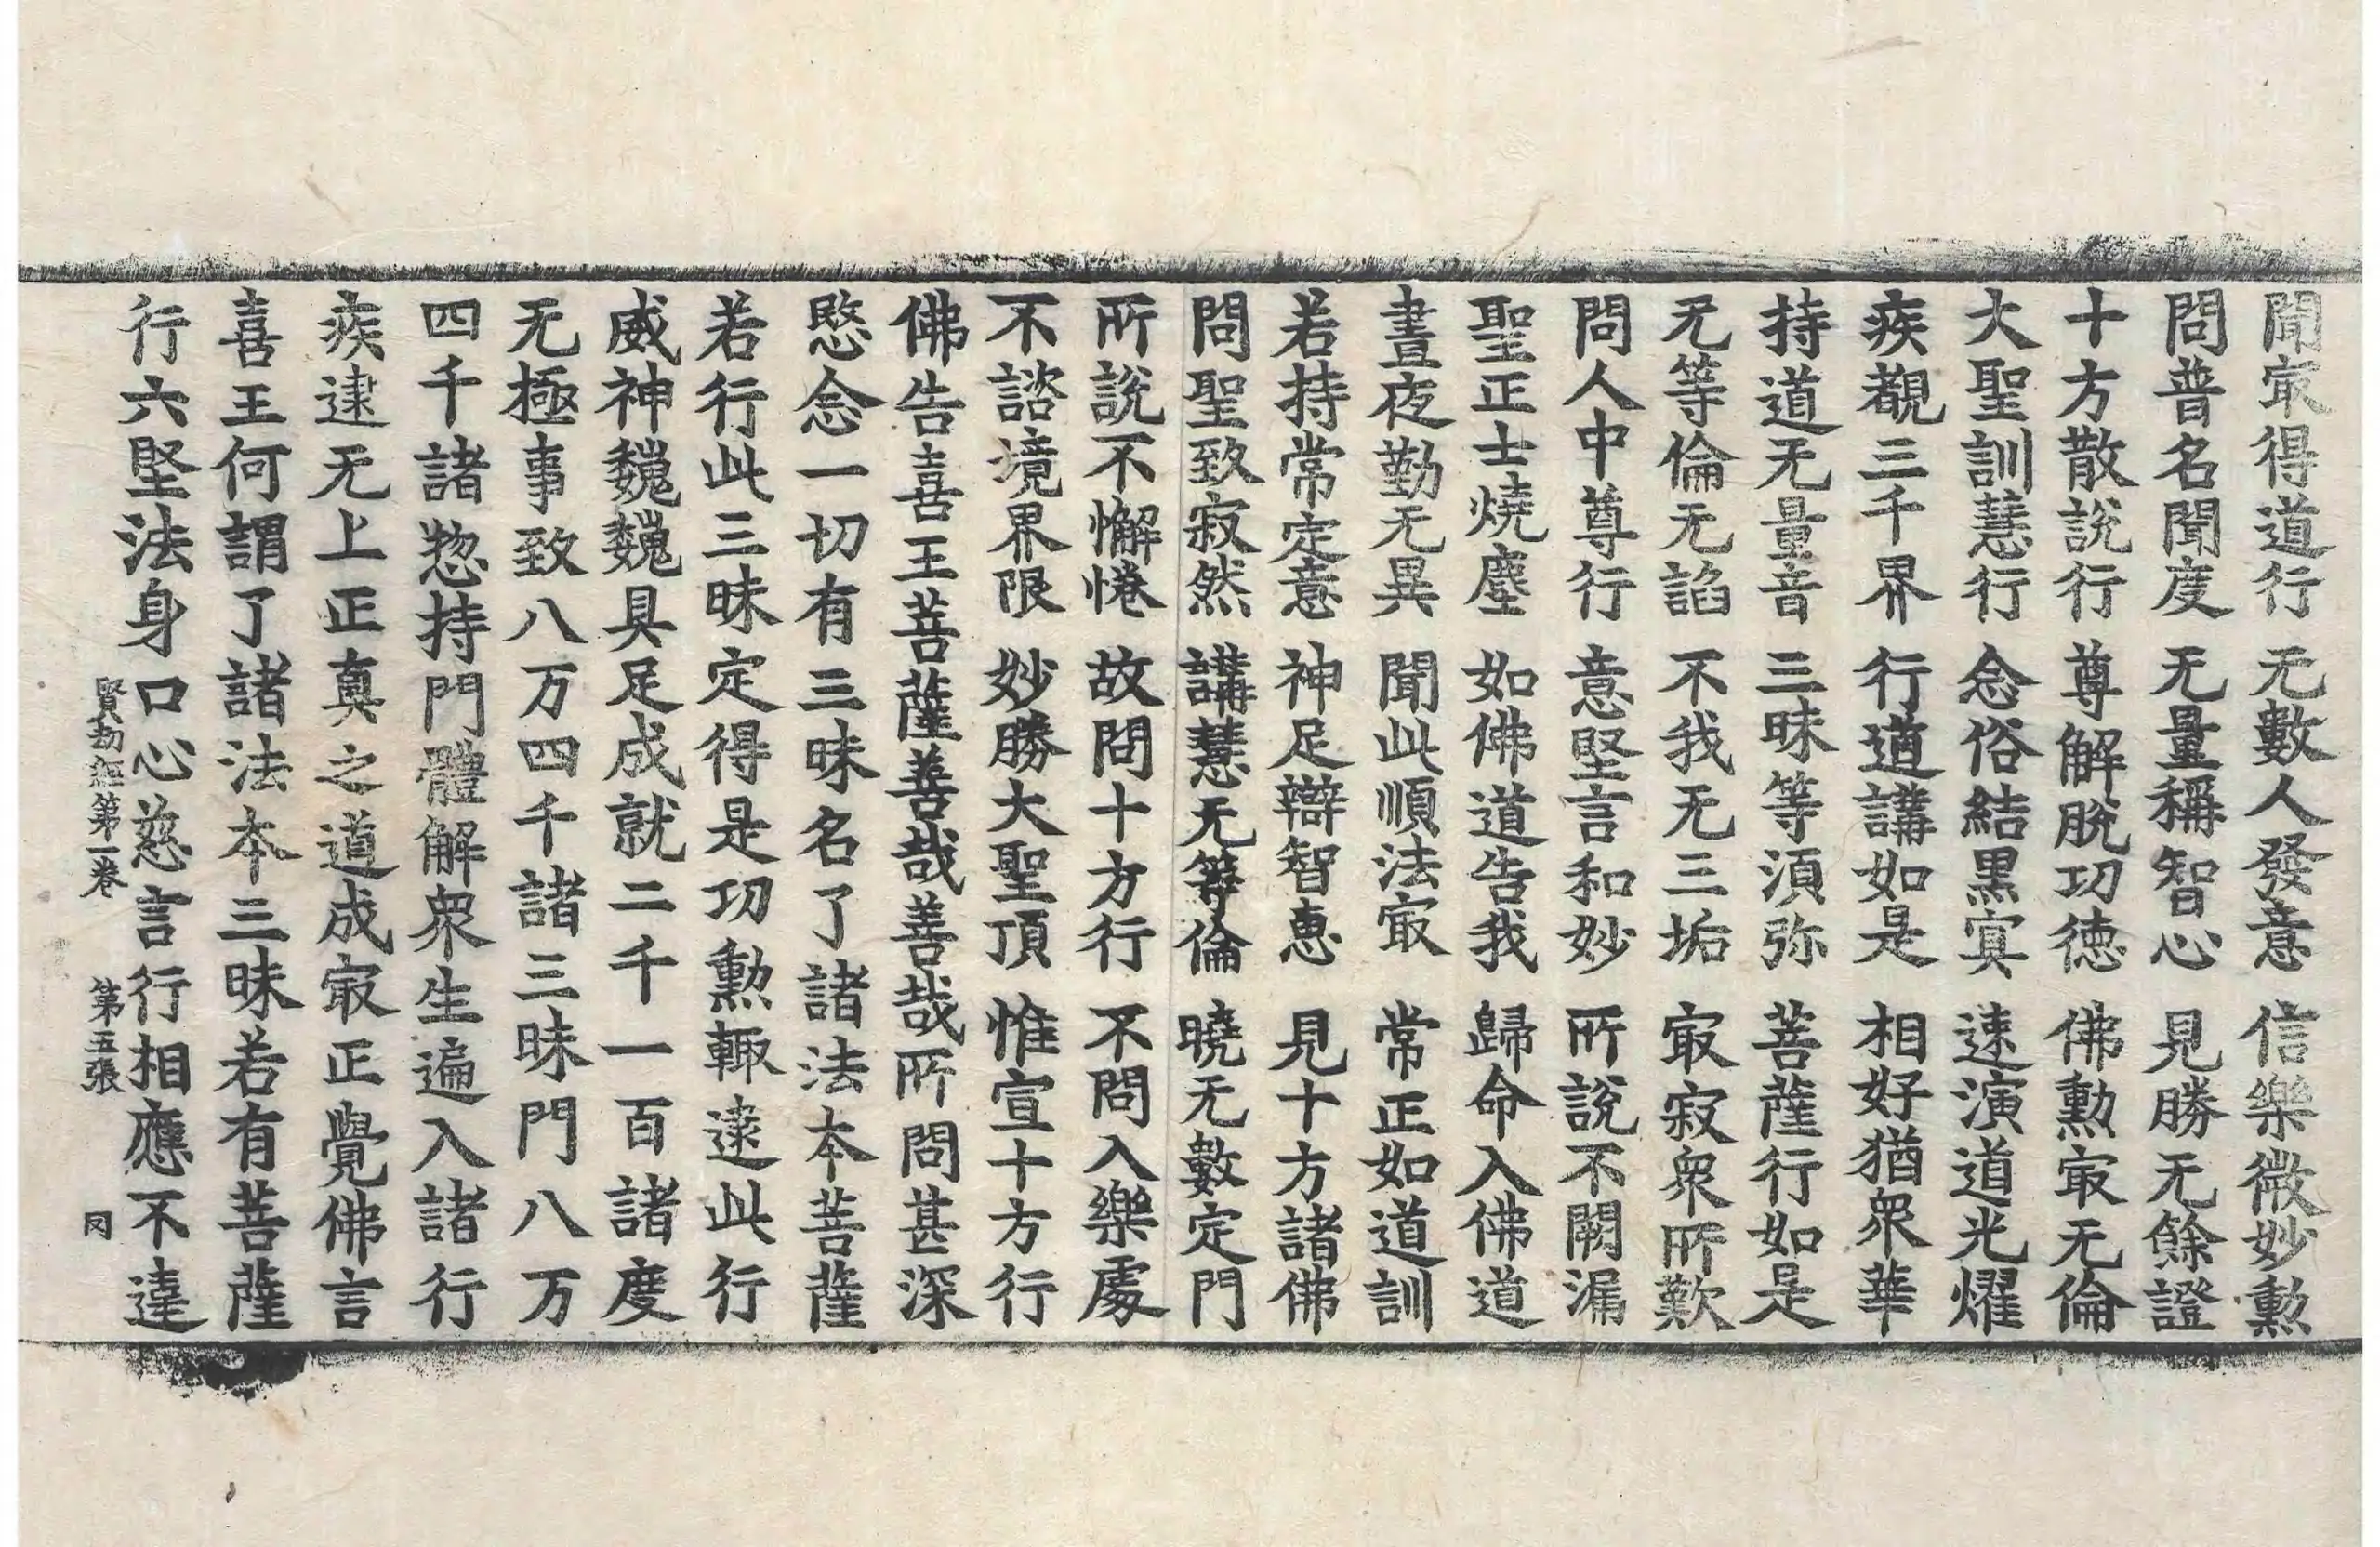 聞㝡得道行 无數人發意 信樂微妙勲
問普名聞度 无量稱智心 見勝无餘證
十方散說行 尊解脫功徳 佛勲㝡无倫
大聖訓慧行 念俗結黒㝠 速演道光燿
疾覩三千界 行遒講如是 相好猶衆華
持道无量音 三昧等湏弥 菩薩行如是
无等倫无謟 不我无三垢 㝡寂衆所歎
問人中尊行 意堅言和妙 所說不闕漏
聖正士燒塵 如佛道告我 歸命入佛道
晝夜勤无異 聞此順法㝡 常正如道訓
若持常定意 神足辯智恵 見十方諸佛
問聖致寂然 講慧无等倫 曉无數定門
所說不懈惓 故問十方行 不問入樂處
不諮境界限 妙勝大聖頂 惟宣十方行
佛告喜王菩薩善哉善哉所問甚深
愍念一切有三昧名了諸法夲菩薩
若行此三昧定得是功勲輙逮此行
威神巍巍具足成就二千一百諸度
无極事致八万四千諸三昧門八万
四千諸惣持門體解衆生遍入諸行
疾逮无上正真之道成㝡正覺佛言
喜王何謂了諸法夲三昧若有菩薩
行六堅法身口心慈言行相應不違
賢劫經第一卷 第五張 冈